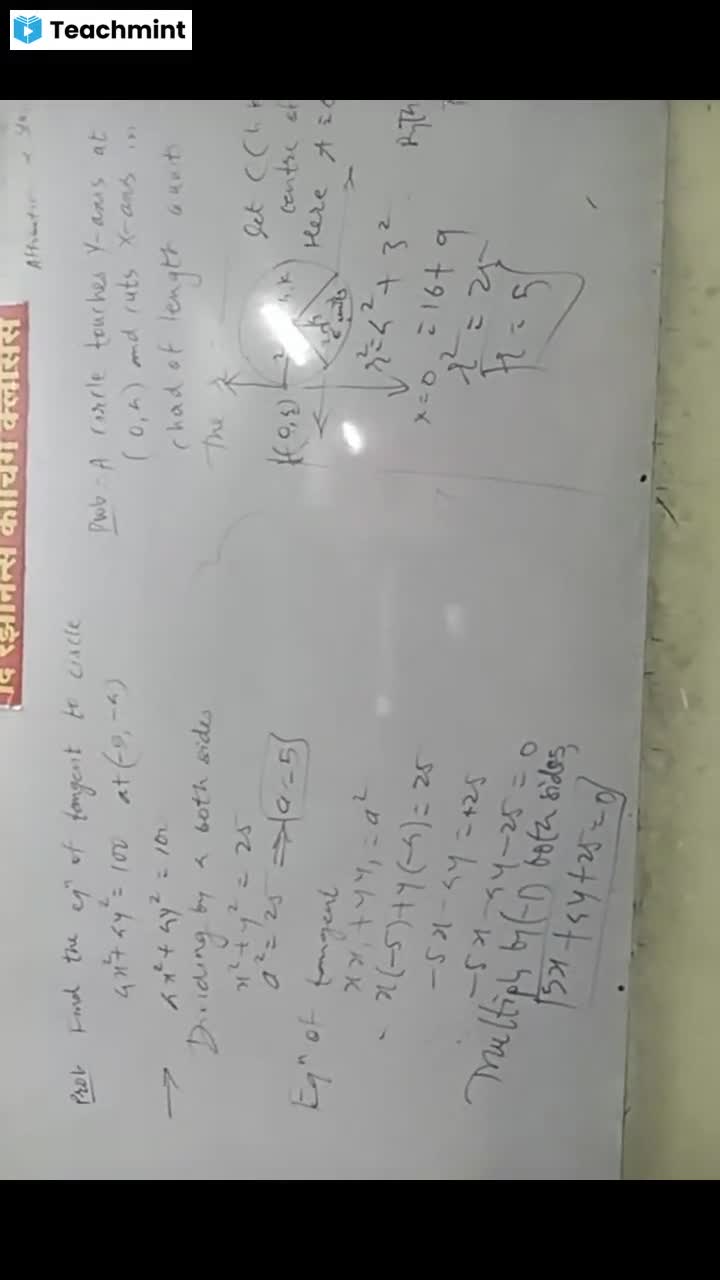 Teachmint
दि रेझोनन्स कोचिंग क्लासेस
Prob Find the eqⁿ of tangent to circle
4x²+4y²=100 at (-5,-4)
→ 4x²+4y²=100
Dividing by 4 both sides
x²+y²=25
a²=25 ⇒ a=5
Eqⁿ of tangent
xx₁+yy₁=a²
x(-5)+y(-4)=25
-5x-4y=+25
-5x-4y-25=0
Multiply by (-1) both sides,
5x+4y+25=0
Prob:- A circle touches Y-axis at
(0,4) and cuts X-axis in
chad of length 6 units
The
(0,4)
(h,k)
6 units
let C(h,k
centre
Here
r²=4²+3²
=16+9
r²=25
r=5
x=0